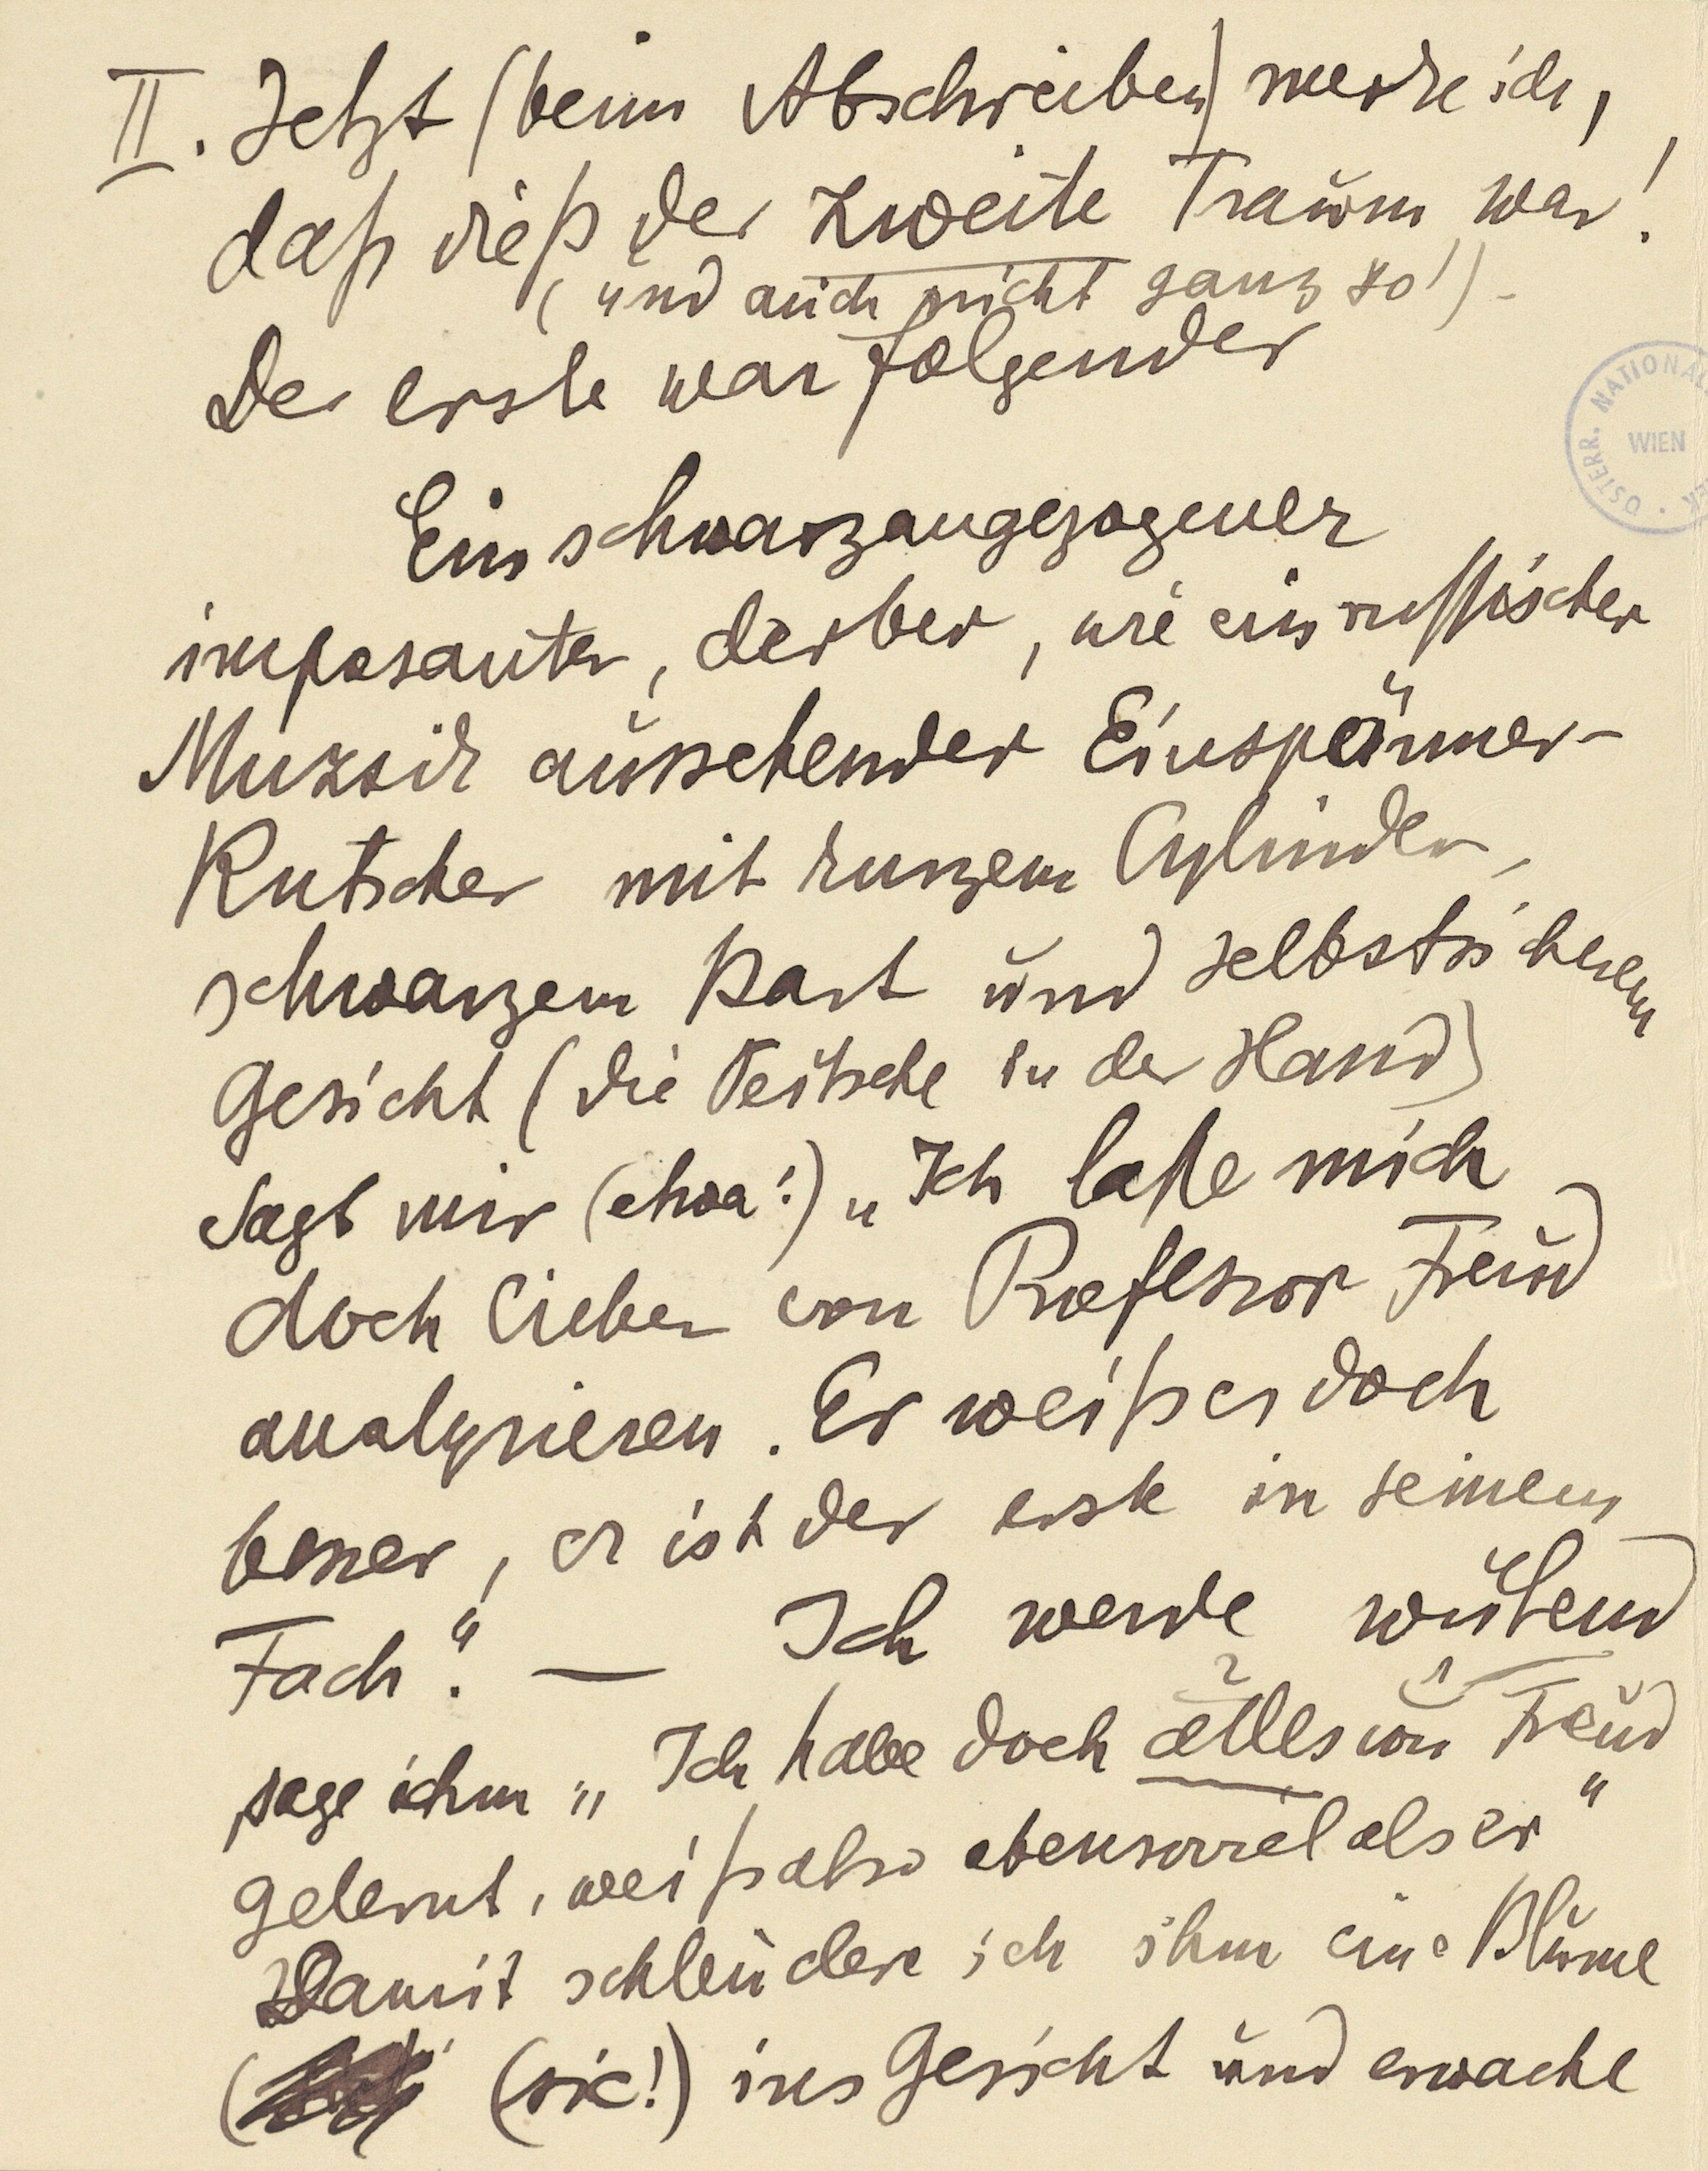 II. Jetzt (beim Abschreiben) merke ich,
daß dieß der zweite Traum war!
(und auch nicht ganz so!) -
Der erste war folgender
ÖSTERR. NATIONAL
WIEN
Ein schwarzangezogener
imposanter, derber, wie ein russischer
Muzsik aussehender Einspänner-
Kutscher mit kurzem Cylinder,
schwarzem Bart und selbstsicherem
Gesicht (die Peitsche in der Hand)
sagt mir (etwa:) „Ich laße mich
doch lieber von Professor Freud
analysieren. Er weiß es doch
besser, er ist der erste in seinem
Fach". — Ich werde wütend
sage ihm „Ich habe doch alles von Freud
gelernt, weiß also ebensoviel als er"
Damit schleudere ich ihm eine Blume
(sic!) ins Gesicht und erwache